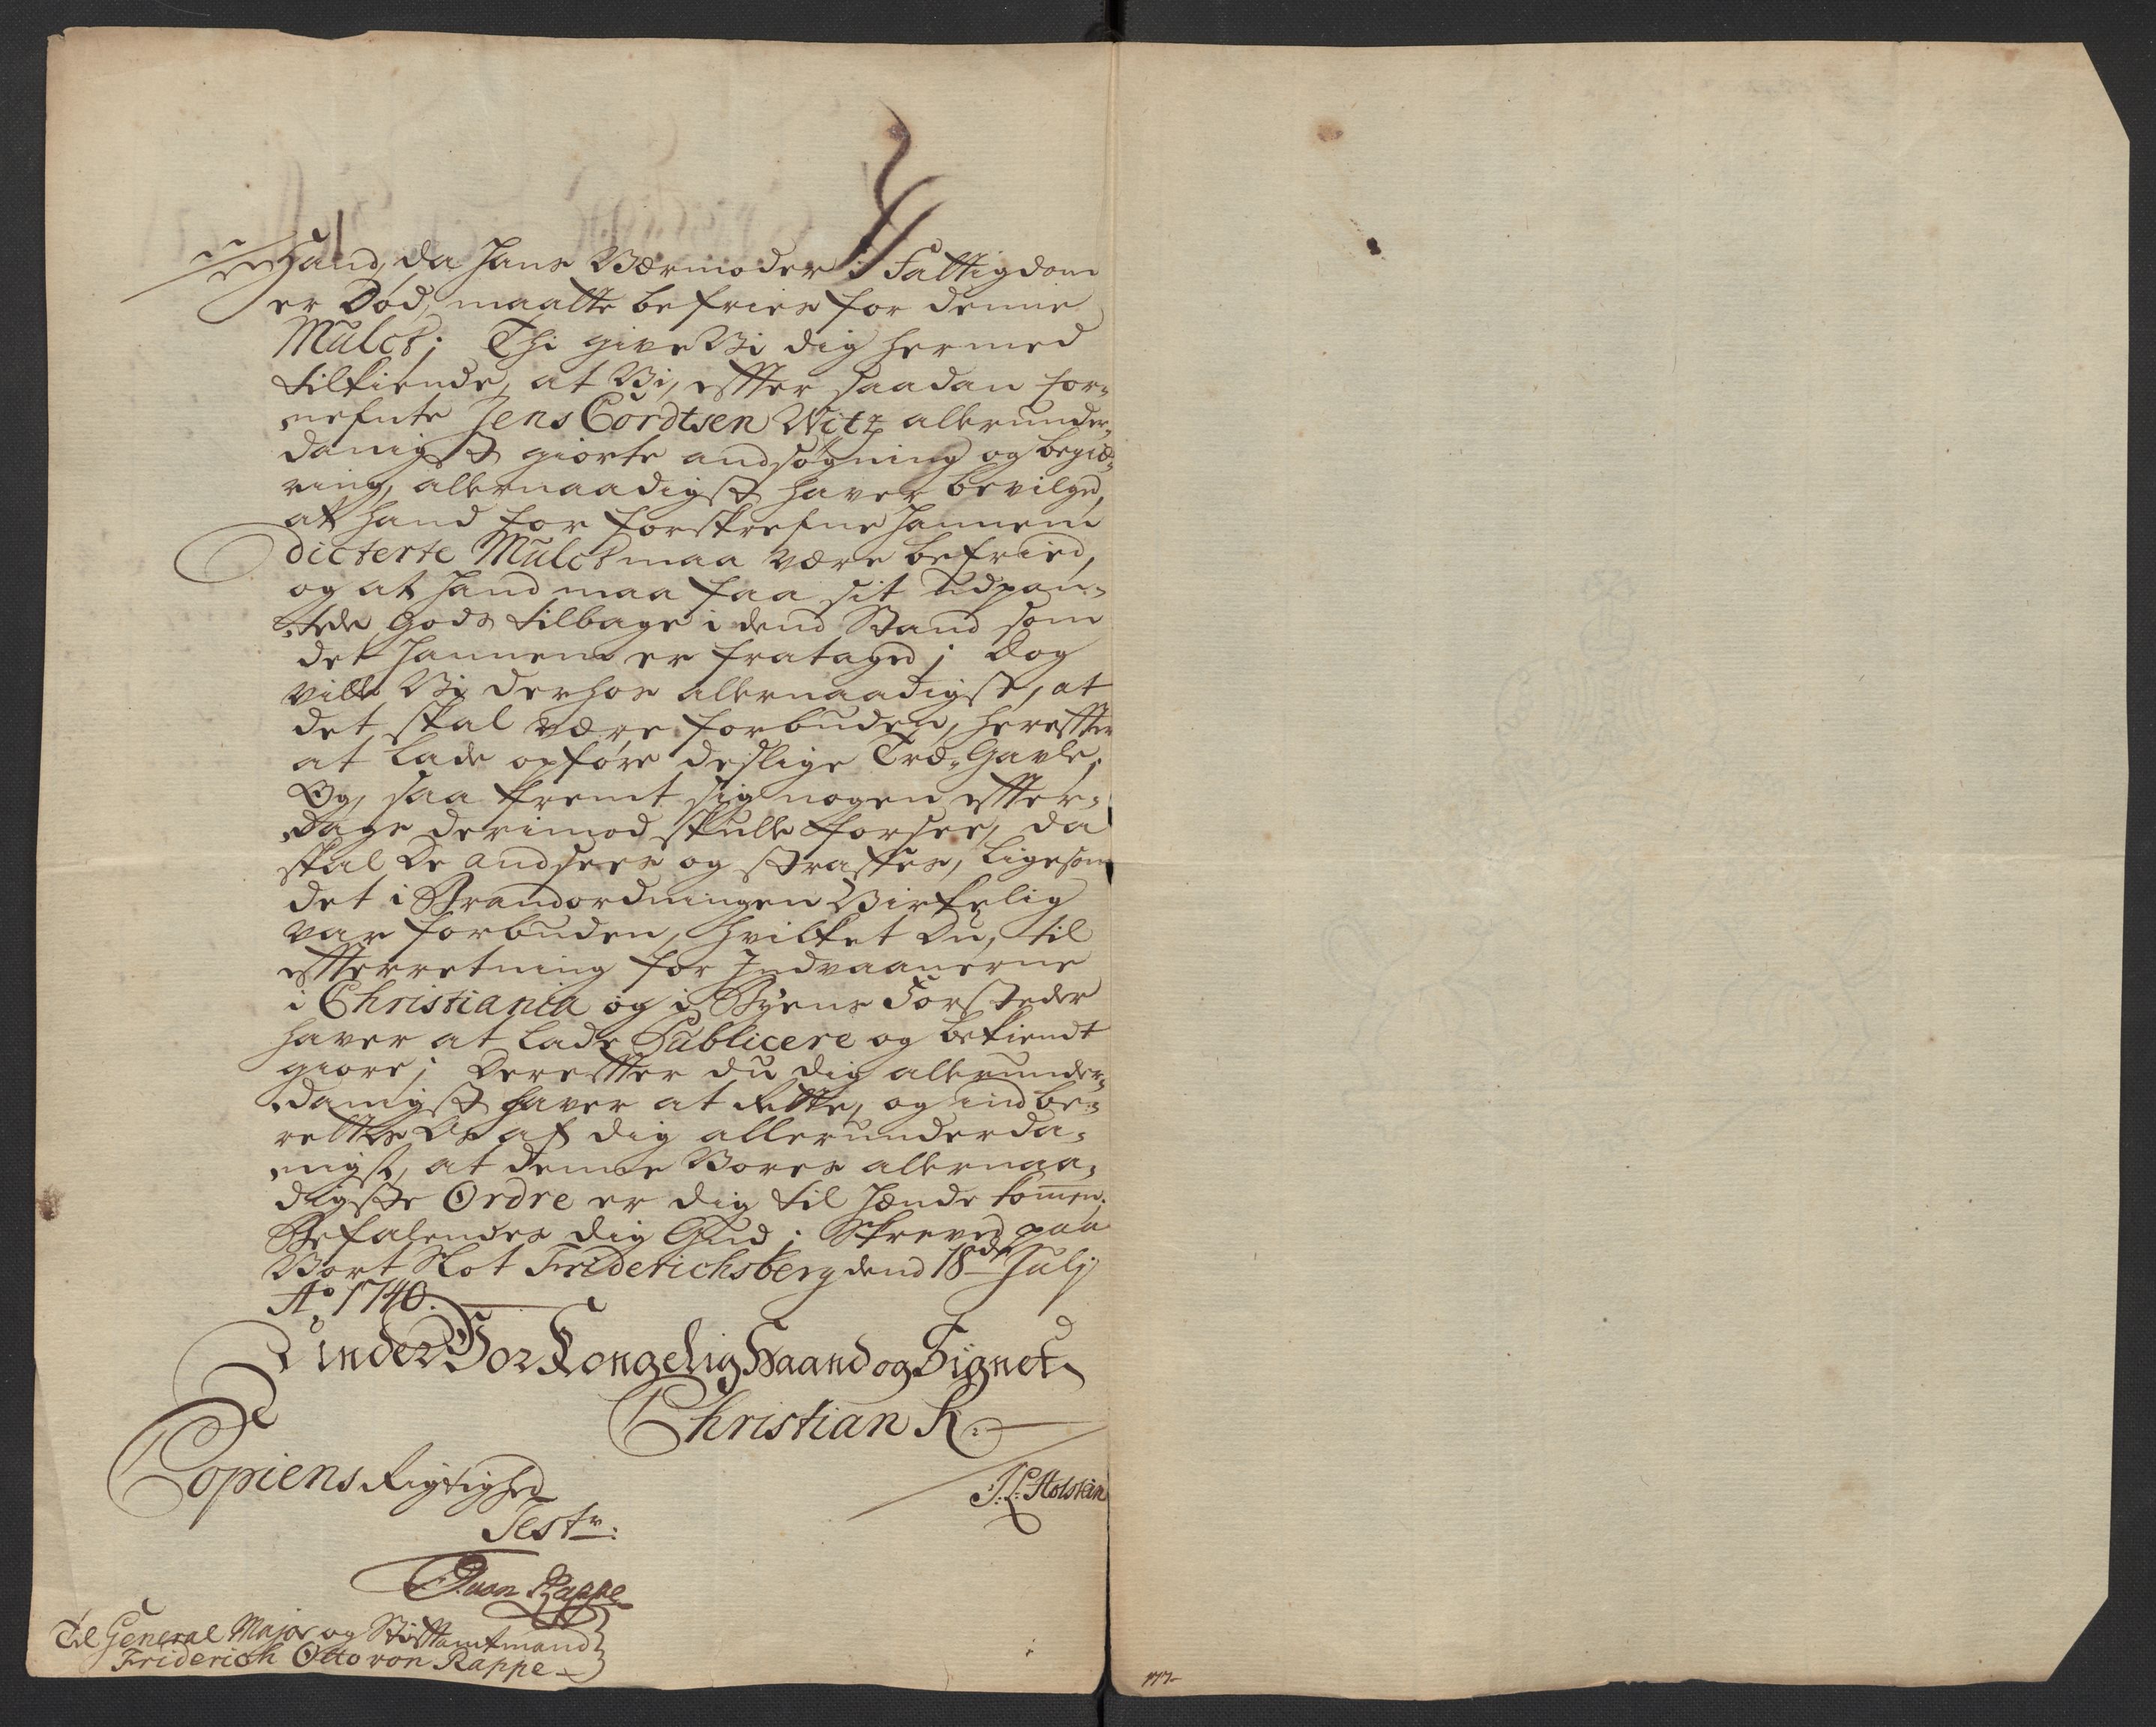 Hand, da hans Værmoder i Fattigdom
er Død, maatte befries for denne
Mulct; Thi give Vi dig hermed
tilkiende, at Vi, efter saadan for-
nefnte Jens Cordtsen Witz allerunder-
danigst giorte andsøgning og begiæ-
ring, allernaadigst haver bevilget,
at hand for forskrefne hannem
dicterte Mulct maa være befried,
og at hand maa faa sit udpan-
tede Gods tilbage i dend Stand som
det hannem er frataged; Dog
ville Vi derhos allernaadigst, at
det skal være forbuden, herefter
at lade opføre deslige Træ-Gavle,
Og, saa fremt sig nogen efter-
Dags derimod skulle forsee, da
skal De andsees og straffes, ligesom
det i Brandordningen Virkelig
var forbuden, hvilket Du, til
efterretning for Indvaanerne
i Christiania og i Byens Forstæder
haver at lade Publicere og bekiendt
giøre; Derefter du dig allerunder-
danigst haver at rette, og indbe-
rettes Os af dig allerunderda-
nigst, at denne Vores allernaa-
digste Ordre er dig til hænde kommen.
Befalendes dig Gud; Skreved paa
Vort Slot Friderichsberg dend 18de July
Ao 1740.
Under Vor Kongelig Haand og Signet
Christian R.
J. L. Holstein
Copiens Rigtighed
Testr:
von Rappe
Til General Major og Stiftamtmand
Friderich Otto von Rappe